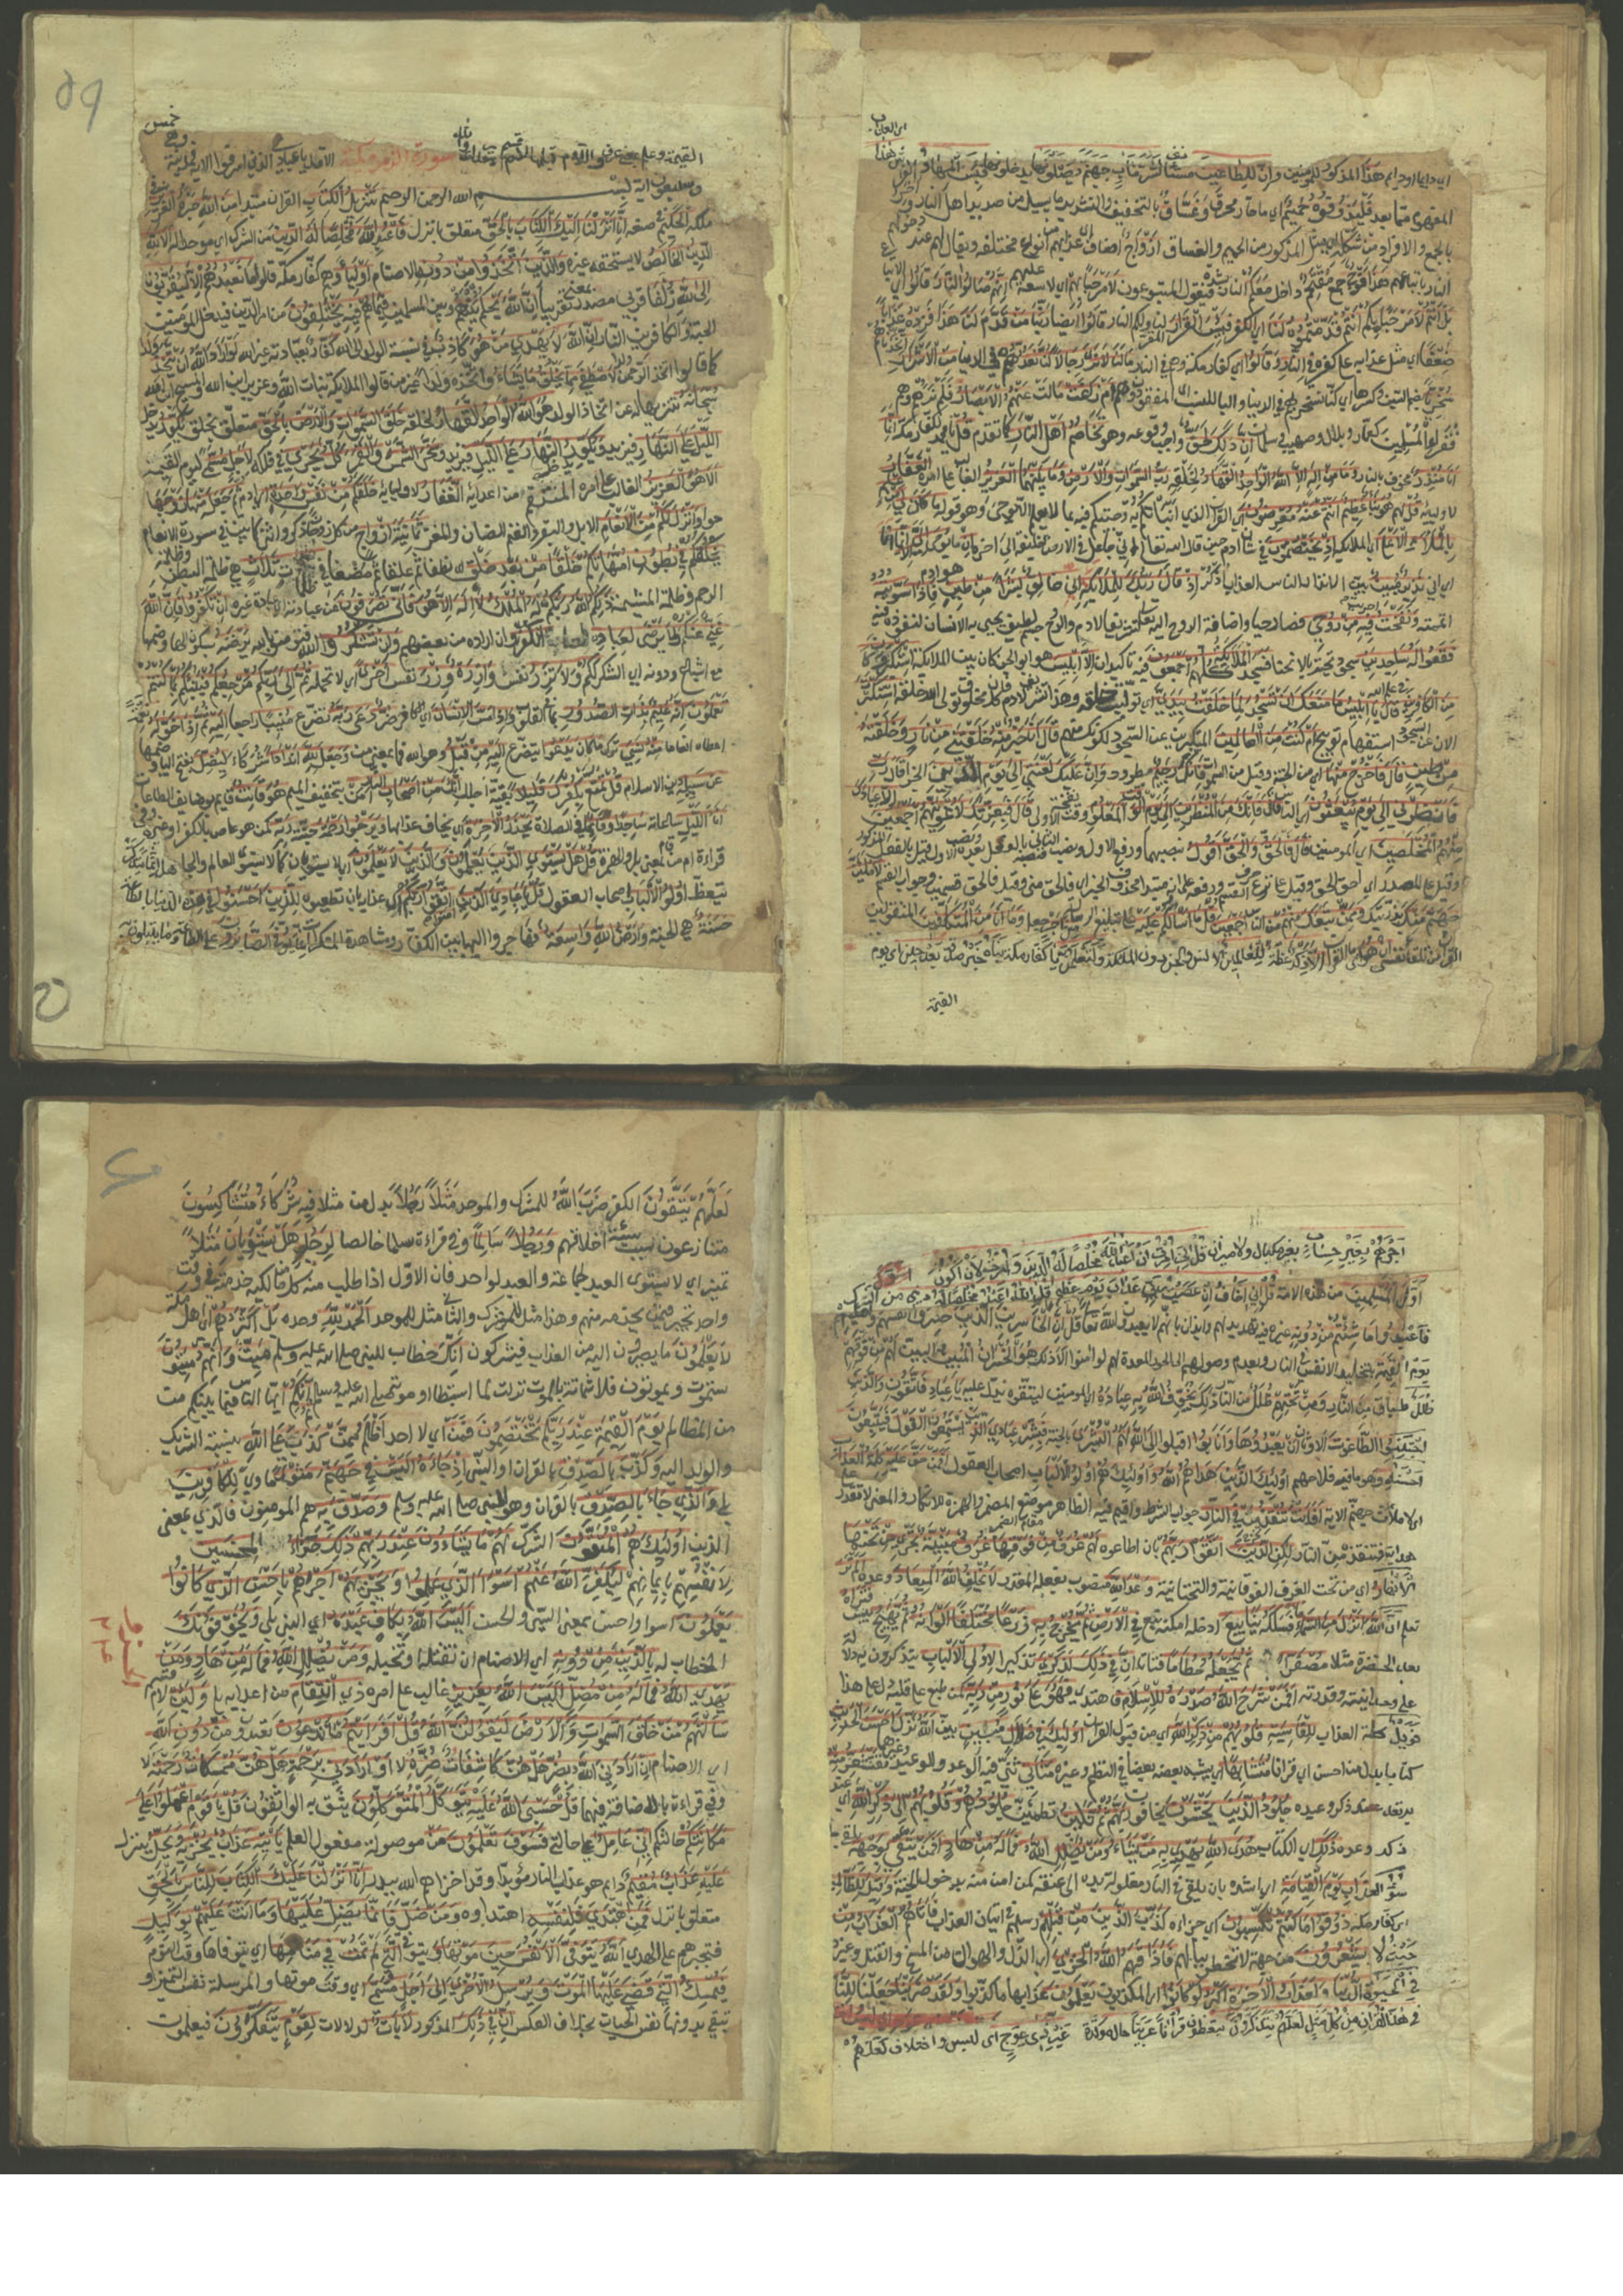 اى دايما او دايم هذا المذكور للمؤمنين وان للطاغين لشر مآب جهنم يصلونها يدخلونها فبئس المهاد الفراش هذا
المفهوم مما بعد فليذوقوه حميم اى ماء حار محرق وغساق بالتخفيف والتشديد ما يسيل من صديد اهل النار وآخر
بالجمع والافراد من شكله اى مثل المذكور من الحميم والغساق ازواج اصناف اى عذابهم من انواع مختلفة ويقال لهم عند دخولهم
النار باتباعهم هذا فوج جمع مقتحم داخل معكم النار بشدة فيقول المتبوعون لا مرحبا بهم اى لا سعة عليهم انهم صالوا النار قالوا اى الاتباع
بل انتم لا مرحبا بكم انتم قدمتموه لنا اى الكفر فبئس القرار لنا ولكم النار قالوا ايضا ربنا من قدم لنا هذا فزده عذابا
ضعفا اى مثل عذابه على كفره فى النار وقالوا اى كفار مكة وهم فى النار ما لنا لا نرى رجالا كنا نعدهم فى الدنيا من الاشرار
سخريا بضم السين وكسرها اى كنا نسخر بهم فى الدنيا والياء للنسب اى امفقودون هم ام زاغت مالت عنهم الابصار فلم نرهم وهم
فقراء المسلمين كعمار وبلال وصهيب وسلمان ان ذلك لحق واجب وقوعه وهو تخاصم اهل النار كما تقدم قل يا محمد لكفار مكة انما
انا منذر مخوف بالنار وما من اله الا الله الواحد القهار لخلقه رب السموات والارض وما بينهما العزيز الغالب على امره الغفار
لاوليائه قل لهم هو نبأ عظيم انتم عنه معرضون اى القرآن الذى انبأتكم به وجئتكم فيه بما لا يعلم الا بوحى وهو قوله ما كان لى من علم
بالملأ الاعلى اى الملائكة اذ يختصمون فى شان ادم حين قال الله تعالى انى جاعل فى الارض خليفة الى اخره ان ما يوحى الى الا انما
انا اى انى نذير مبين بين الانذار للناس العذاب اذكر اذ قال ربك للملائكة انى خالق بشرا من طين هو ادم فاذا سويته
اتممته ونفخت اجريت فيه من روحى فصار حيا واضافة الروح اليه تشريف لادم والروح جسم لطيف يحيى به الانسان بنفوذه فيه
فقعوا له ساجدين سجود تحية بالانحناء فسجد الملائكة كلهم اجمعون فيه تاكيدان الا ابليس هو ابو الجن كان بين الملائكة استكبر وكان
من الكافرين فى علم الله قال يا ابليس ما منعك ان تسجد لما خلقت بيدى اى توليت خلقه وهذا تشريف لادم فان كل مخلوق تولى الله خلقه استكبرت
الان عن السجود استفهام توبيخ ام كنت من العالين المتكبرين عن السجود لكونك منهم قال انا خير منه خلقتنى من نار وخلقته
من طين قال فاخرج منها اى من الجنة وقيل من السموات فانك رجيم مطرود وان عليك لعنتى الى يوم الدين الجزاء قال رب
فانظرنى الى يوم يبعثون اى الناس قال فانك من المنظرين الى يوم الوقت المعلوم وقت النفخة الاولى قال فبعزتك لاغوينهم اجمعين الا عبادك
منهم المخلصين اى المؤمنين قال فالحق والحق اقول بنصبهما ورفع الاول ونصب الثانى فنصبه بالفعل بعده ونصب الاول قيل بالفعل المذكور
وقيل على المصدر اى احق الحق وقيل على نزع حرف القسم ورفعه على انه مبتدا محذوف الخبر اى فالحق منى وقيل فالحق قسمى وجواب القسم لاملأن
جهنم منك بذريتك وممن تبعك منهم من الناس اجمعين قل ما اسألكم عليه على تبليغ الرسالة من اجر جعل وما انا من المتكلفين المتقولين
القرآن من تلقاء نفسى ان هو اى القرآن الا ذكر عظة للعالمين للانس والجن دون الملائكة ولتعلمن يا كفار مكة نبأه خبر صدقه بعد حين اى يوم
القيمة
القيمة وعلم بمعنى عرف واللام قبلها لام قسم مقدر اى والله سورة الزمر مكية الا قل يا عبادى الذين اسرفوا الاية فمدنية وهى خمس
وسبعون اية بسم الله الرحمن الرحيم تنزيل الكتاب القران مبتدا من الله خبره العزيز فى
ملكه الحكيم فى صنعه انا انزلنا اليك الكتاب بالحق متعلق بانزل فاعبد الله مخلصا له الدين من الشرك اى موحدا له الا لله
الدين الخالص لا يستحقه غيره والذين اتخذوا من دونه الاصنام اولياء وهم كفار مكة قالوا ما نعبدهم الا ليقربونا
الى الله زلفى قربى مصدر بمعنى تقريبا ان الله يحكم بينهم وبين المسلمين فيما هم فيه يختلفون من امر الدين فيدخل المؤمنين
الجنة والكافرين النار ان الله لا يهدى من هو كاذب فى نسبة الولد الى الله كفار بعبادته غير الله لو اراد الله ان يتخذ ولدا
كما قالوا اتخذ الرحمن ولدا لاصطفى مما يخلق ما يشاء واتخذه ولدا غير من قالوا الملائكة بنات الله وعزير ابن الله والمسيح ابن الله
سبحانه تنزيها له عن اتخاذ الولد هو الله الواحد القهار لخلقه خلق السموات والارض بالحق متعلق بخلق يكور يدخل
الليل على النهار فيزيد ويكور النهار على الليل فيزيد وسخر الشمس والقمر كل يجرى فى فلكه لاجل مسمى ليوم القيمة
الا هو العزيز الغالب على امره المنتقم من اعدائه الغفار لاوليائه خلقكم من نفس واحدة اى ادم ثم جعل منها زوجها
حواء وانزل لكم من الانعام الابل والبقر والغنم الضان والمعز ثمانية ازواج من كل زوجان ذكر وانثى كما بين فى سورة الانعام
يخلقكم فى بطون امهاتكم خلقا من بعد خلق اى نطفا ثم علقا ثم مضغا فى ظلمات ثلاث هى ظلمة البطن وظلمة
الرحم وظلمة المشيمة ذلكم الله ربكم له الملك لا اله الا هو فانى تصرفون عن عبادته الى عبادة غيره ان تكفروا فان الله
غنى عنكم ولا يرضى لعباده الكفر وان اراده من بعضهم وان تشكروا الله فتؤمنوا يرضه بسكون الهاء وضمها
مع اشباع ودونه اى الشكر لكم ولا تزر نفس وازرة وزر نفس اخرى اى لا تحمله ثم الى ربكم مرجعكم فينبئكم بما كنتم
تعملون انه عليم بذات الصدور بما فى القلوب واذا مس الانسان اى الكافر ضر دعا ربه تضرع منيبا راجعا اليه ثم اذا خوله نعمة
اعطاه انعاما منه نسى ترك ما كان يدعوا يتضرع اليه من قبل وهو الله فما بمعنى من وجعل لله اندادا شركاء ليضل بفتح الياء وضمها
عن سبيله دين الاسلام قل تمتع بكفرك قليلا بقية اجلك انك من اصحاب النار امن بتخفيف الميم هو قانت قايم بوظائف الطاعات
اناء الليل ساعاته ساجدا وقايما فى الصلاة يحذر الاخرة اى يخاف عذابها ويرجوا رحمة جنة ربه كمن هو عاص بالكفر او غيره وفى
قراءة ام من قام بمعنى بل والهمزة قل هل يستوى الذين يعلمون والذين لا يعلمون اى لا يستويان كما لا يستوى العالم والجاهل انما يتذكر
يتعظ اولوا الالباب اصحاب العقول قل يا عبادى الذين امنوا اتقوا ربكم اى عذابه بان تطيعوه للذين احسنوا فى هذه الدنيا بالطاعة
حسنة هى الجنة وارض الله واسعة فهاجروا اليها من بين الكفار ومشاهدة المنكرات انما يوفى الصابرون على الطاعة وما يبتلون به
اجرهم بغير حساب بغير مكيال ولا ميزان قل انى امرت ان اعبد الله مخلصا له الدين وامرت لان اكون
اول المسلمين من هذه الامة قل انى اخاف ان عصيت ربى عذاب يوم عظيم قل الله اعبد مخلصا له دينى من الشرك
فاعبدوا ما شئتم من دونه غيره فيه تهديد لهم وايذان بانهم لا يعبدون الله تعالى قل ان الخاسرين الذين خسروا انفسهم واهليهم
يوم القيمة بتخليد الانفس فى النار وبعدم وصولهم الى الحور المعدة لهم لو امنوا الا ذلك هو الخسران المبين البين لهم من فوقهم
ظلل طباق من النار ومن تحتهم ظلل من النار ذلك يخوف الله به عباده اى المؤمنين ليتقوه يدل عليه يا عباد فاتقون والذين
اجتنبوا الطاغوت الاوثان ان يعبدوها وانابوا اقبلوا الى الله لهم البشرى بالجنة فبشر عبادى الذين يستمعون القول فيتبعون
احسنه وهو ما فيه فلاحهم اولئك الذين هداهم الله واولئك هم اولوا الالباب اصحاب العقول افمن حق عليه كلمة العذاب
اى لاملأن جهنم الاية افانت تنقذ من فى النار جواب الشرط واقيم فيه الظاهر موضع المضمر والهمزة للانكار والمعنى لا تقدر على
هدايته فتنقذه من النار لكن الذين اتقوا ربهم بان اطاعوه لهم غرف من فوقها غرف مبنية تجرى من تحتها
الانهار اى من تحت الغرف الفوقانية والتحتانية وعد الله منصوب بفعله المقدر لا يخلف الله الميعاد وعده الم تر
تعلم ان الله انزل من السماء ماء فسلكه ينابيع ادخله امكنة نبع فى الارض ثم يخرج به زرعا مختلفا الوانه ثم يهيج ييبس فتراه
بعد الخضرة مثلا مصفرا ثم يجعله حطاما فتاتا ان فى ذلك لذكرى تذكيرا لاولى الالباب يتذكرون به لدلالته
على وحدانيته وقدرته افمن شرح الله صدره للاسلام فاهتدى فهو على نور من ربه كمن طبع على قلبه دل على هذا
فويل كلمة العذاب للقاسية قلوبهم من ذكر الله اى من قبول القران اولئك فى ضلال مبين بين الله نزل احسن الحديث
كتابا بدل من احسن اى قرانا متشابها اى يشبه بعضه بعضا فى النظم وغيره مثانى ثنى فيه الوعد والوعيد وغيرهما تقشعر منه
ترتعد عند ذكر وعيده جلود الذين يخشون يخافون ربهم ثم تلين تطمئن جلودهم وقلوبهم الى ذكر الله اى عند
ذكر وعده ذلك اى الكتاب هدى الله يهدى به من يشاء ومن يضلل الله فما له من هاد افمن يتقى يلقى بوجهه
سوء العذاب يوم القيامة اى اشده بان يلقى فى النار مغلولة يداه الى عنقه كمن امن منه بدخول الجنة وقيل للظالمين
اى كفار مكة ذوقوا ما كنتم تكسبون اى جزاءه كذب الذين من قبلهم رسلهم فى اتيان العذاب فاتاهم العذاب من
حيث لا يشعرون من جهة لا تخطر ببالهم فاذاقهم الله الخزى الذل والهوان من المسخ والقتل وغيره
فى الحيوة الدنيا ولعذاب الاخرة اكبر لو كانوا اى المكذبون يعلمون عذابها ما كذبوا ولقد ضربنا جعلنا للناس
فى هذا القران من كل مثل لعلهم يتذكرون يتعظون قرانا عربيا حال موكدة غير ذى عوج اى لبس واختلاف لعلهم
لعلهم يتقون الكفر ضرب الله للمشرك والموحد مثلا رجلا بدل من مثلا فيه شركاء متشاكسون
متنازعون سيئة اخلاقهم ورجلا سالما وفى قراءة سلما خالصا لرجل هل يستويان مثلا
تمييز اى لا يستوى العبد لجماعة والعبد لواحد فان الاول اذا طلب منه كل من مالكيه خدمته فى وقت
واحد تحير فيمن يخدمه منهم وهذا مثل للمشرك والثانى مثل للموحد الحمد لله وحده بل اكثرهم اى اهل مكة
لا يعلمون ما يصيرون اليه من العذاب فيشركون انك خطاب للنبى صلى الله عليه وسلم ميت وانهم ميتون
ستموت ويموتون فلا شماتة بالموت نزلت لما استبطاوا موته صلى الله عليه وسلم ثم انكم ايها الناس فيما بينكم من
من المظالم يوم القيمة عند ربكم تختصمون فمن اى لا احد اظلم ممن كذب على الله بنسبة الشريك
والولد اليه وكذب بالصدق بالقران اذ جاءه اليس فى جهنم مثوى ماوى للكافرين
بلى والذى جاء بالصدق بالقران وهو النبى صلى الله عليه وسلم وصدق به هم المومنون فالذى بمعنى
الذين اولئك هم المتقون الشرك لهم ما يشاءون عند ربهم ذلك جزاء المحسنين
لانفسهم بايمانهم ليكفر الله عنهم اسوا الذى عملوا ويجزيهم اجرهم باحسن الذى كانوا
يعملون اسوا واحسن بمعنى السيئ والحسن اليس الله بكاف عبده اى النبى بلى ويخوفونك
الخطاب له بالذين من دونه اى الاصنام ان تقتله او تخبله ومن يضلل الله فما له من هاد ومن
يهدى الله فما له من مضل اليس الله بعزيز غالب على امره ذى انتقام من اعدائه بلى ولئن لام قسم
سالتهم من خلق السموات والارض ليقولن الله قل افرايتم ما تدعون تعبدون من دون الله
اى الاصنام ان ارادنى الله بضر هل هن كاشفات ضره لا او ارادنى برحمة هل هن ممسكات رحمته لا
وفى قراءة بالاضافة فيهما قل حسبى الله عليه يتوكل المتوكلون يثق به الواثقون قل يا قوم اعملوا على
مكانتكم حالتكم انى عامل على حالتى فسوف تعلمون من موصولة مفعول العلم ياتيه عذاب يخزيه ويحل ينزل
عليه عذاب مقيم دايم هو عذاب النار وقد اخزاهم الله ببدر انا انزلنا عليك الكتاب للناس بالحق
متعلق بانزل فمن اهتدى فلنفسه اهتداوه ومن ضل فانما يضل عليها وما انت عليهم بوكيل
فتجبرهم على الهدى الله يتوفى الانفس حين موتها ويتوفى التى لم تمت فى منامها اى يتوفاها وقت النوم
فيمسك التى قضى عليها الموت ويرسل الاخرى الى اجل مسمى اى وقت موتها والمرسلة نفس التمييز
تبقى بدونها نفس الحيات بخلاف العكس ان فى ذلك المذكور لايات دلالات لقوم يتفكرون فيعلمون